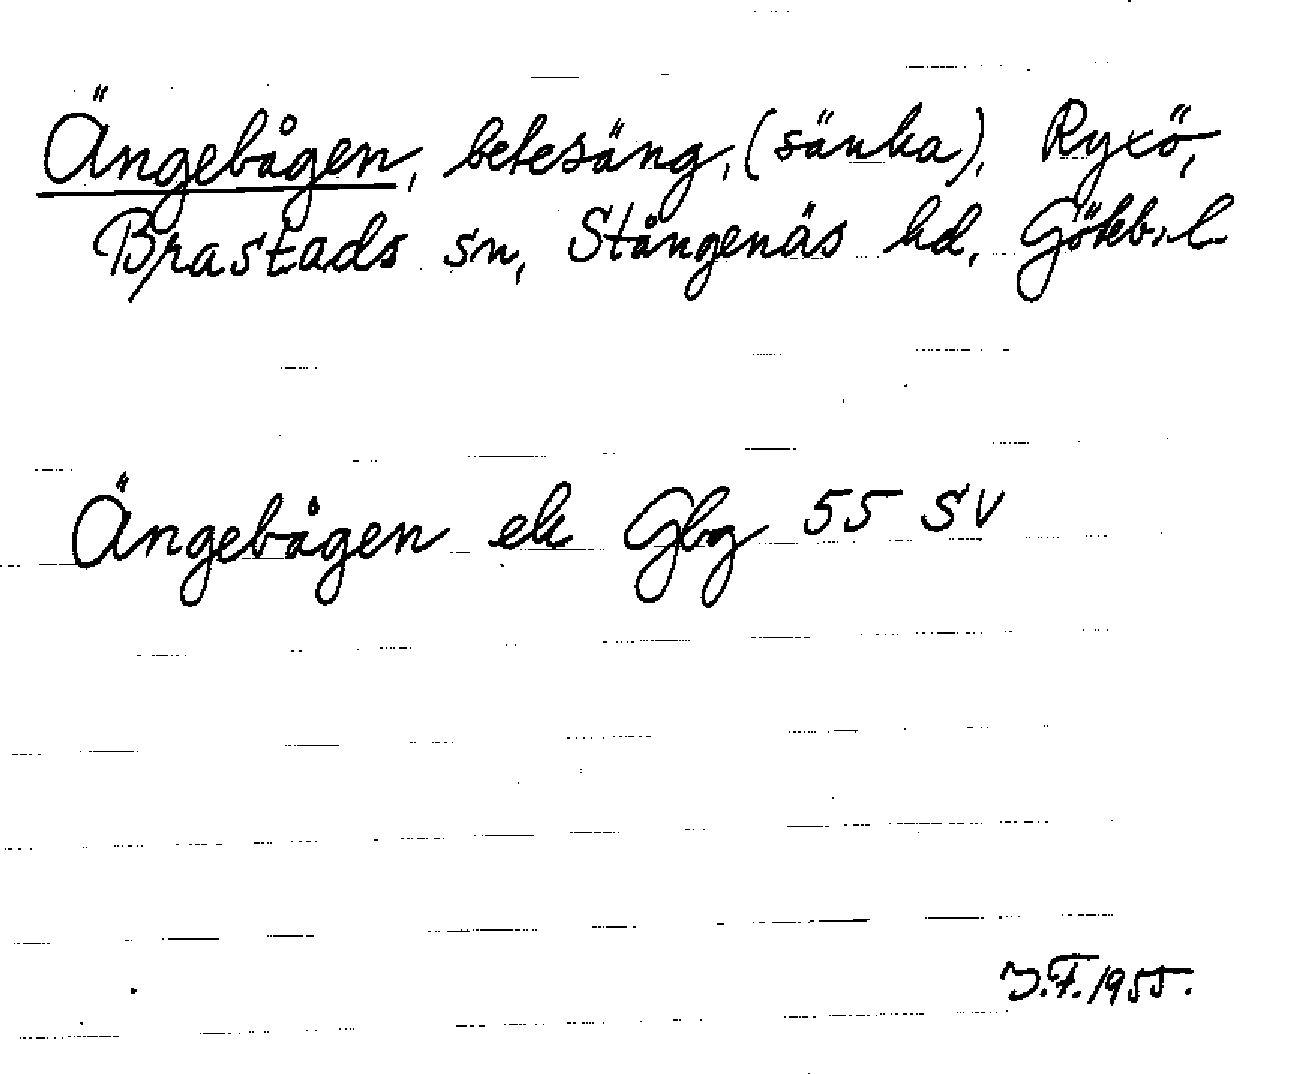 Ängebågen, betesäng, (sänka), Ryxö,
Brastads sn, Stångenäs hd, Gökb.l
Ängebågen ek Gbg 55 SV
J.F. 1955.